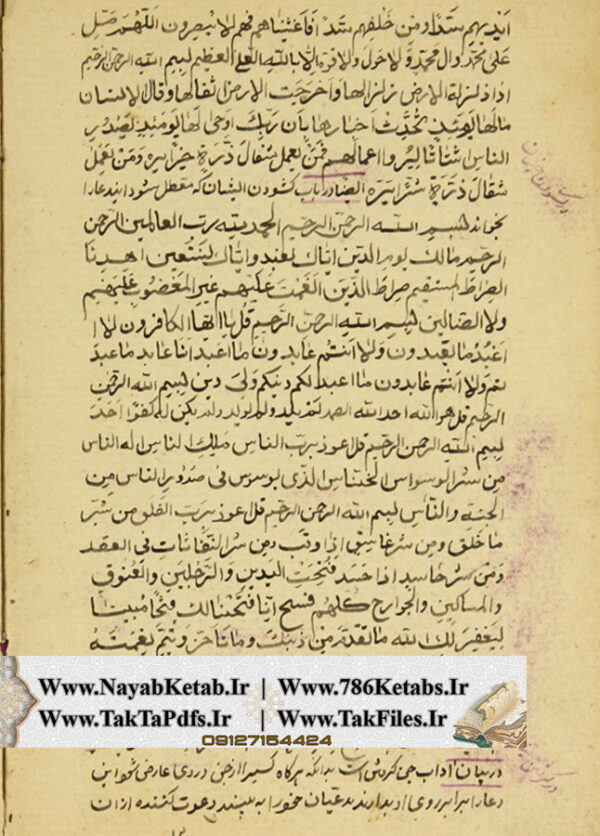 ایدیهم سدا ومن خلفهم سدا فاغشیناهم فهم لا یبصرون اللهم صل
علی محمد وال محمد ولا حول ولا قوة الا بالله العلی العظیم بسم الله الرحمن الرحیم
اذا زلزلة الارض زلزالها واخرجت الارض اثقالها وقال الانسان
مالها یومئذ تحدث اخبارها بان ربک اوحی لها یومئذ یصدر
الناس اشتاتا لیروا اعمالهم فمن یعمل مثقال ذرة خیرا یره ومن یعمل
مثقال ذرة شرا یره ایضا در باب کشودن ایشان که معطل شود ایند عارا
بخواند بسم الله الرحمن الرحیم الحمد لله رب العالمین الرحمن
الرحیم مالک یوم الدین ایاک نعبد وایاک نستعین اهدنا
الصراط المستقیم صراط الذین انعمت علیهم غیر المغضوب علیهم
ولا الضالین بسم الله الرحمن الرحیم قل یا ایها الکافرون لا
اعبد ما تعبدون ولا انتم عابدون ما اعبد انا عابد ما عبد
تم ولا انتم عابدون ما اعبد لکم دینکم ولی دین بسم الله الرحمن
الرحیم قل هو الله احد الله الصمد لم یلد ولم یولد ولم یکن له کفوا احد
بسم الله الرحمن الرحیم قل اعوذ برب الناس ملک الناس اله الناس
من شر الوسواس الخناس الذی یوسوس فی صدور الناس من
الجنة والناس بسم الله الرحمن الرحیم قل اعوذ برب الفلق من شر
ما خلق ومن شر غاسق اذا وقب ومن شر النفاثات فی العقد
ومن شر حاسد اذا حسد فتحت الیدین والرجلین والعنوق
والمساکین والجوارح کلهم فسبح انا فتحنا لک فتحا مبینا
لیغفر لک الله ما تقدم من ذنبک وما تأخر ویتم نعمته
Www.NayabKetab.Ir | Www.786Ketabs.Ir
Www.TakTaPdfs.Ir | Www.TakFiles.Ir
09127154424
در بیان اداب جن کرفتن است بدانکه هرکاه کسیرا از جن دردی عارض شود این
دعا را برابر روی او بدارند مدعیان خود را به بیند دعوت کننده از ان